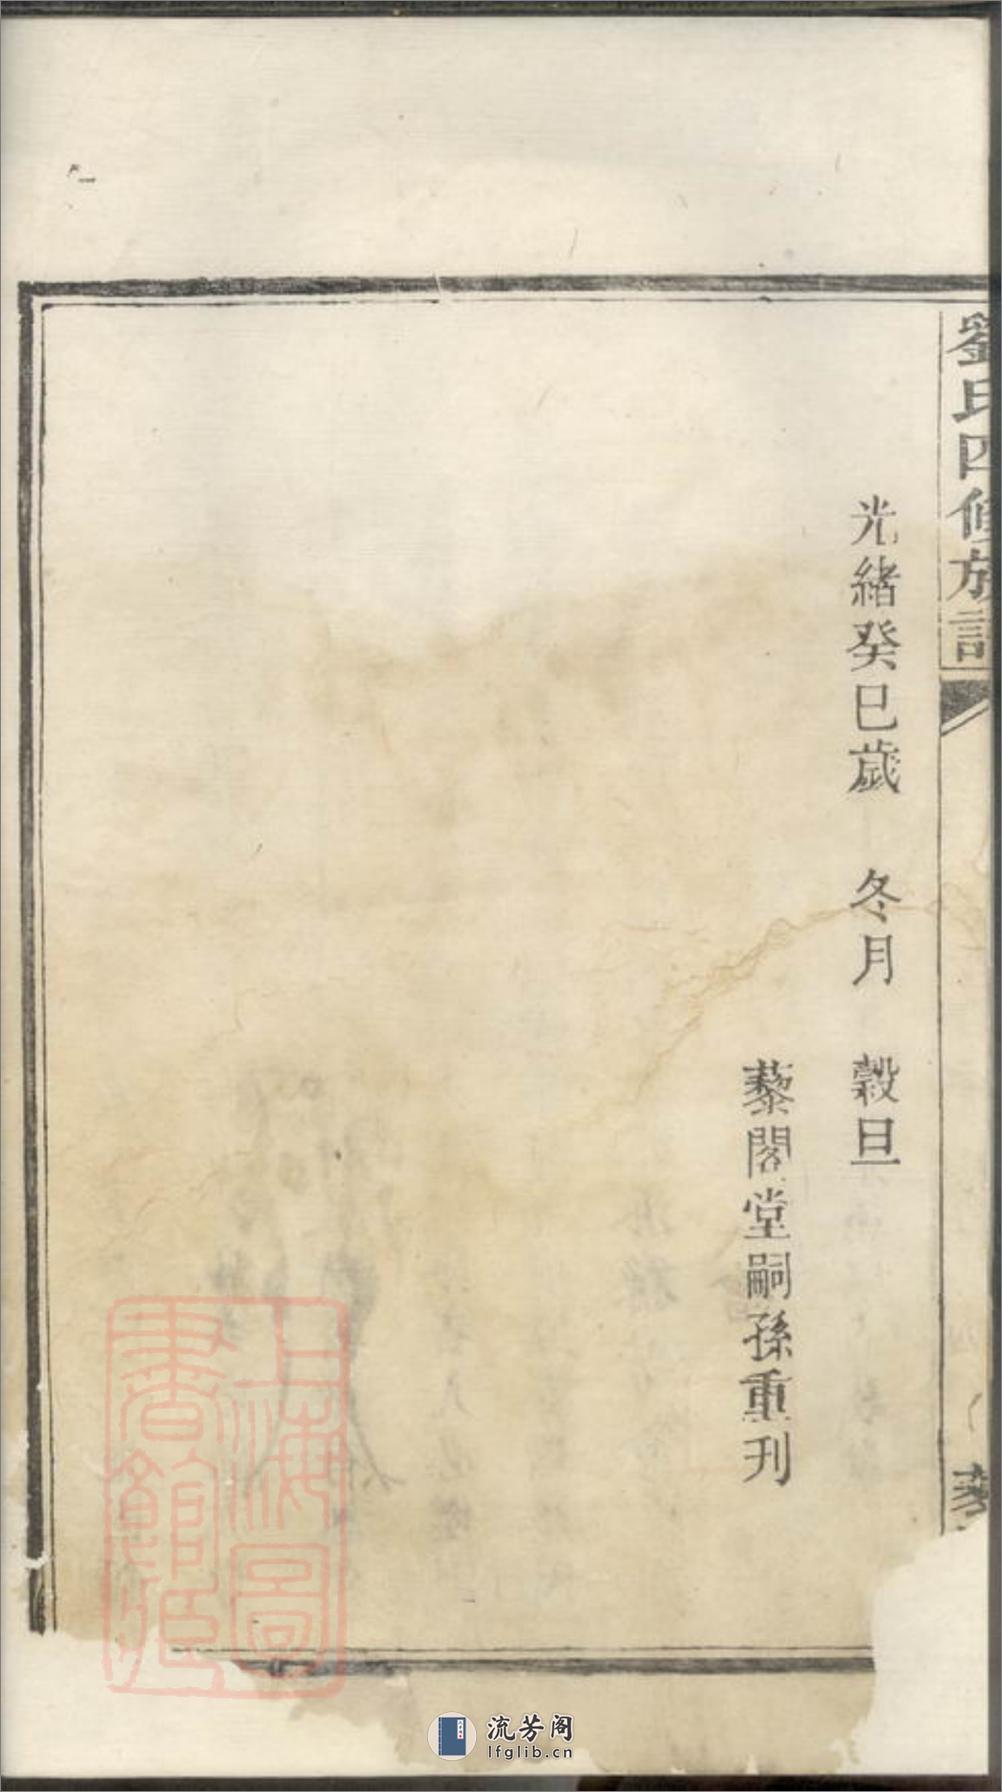 劉氏四修族譜
光緒癸巳歲 冬月 穀旦
藜閣堂嗣孫重刊
藜
上海圖書館藏
流芳阁
lfglib.cn